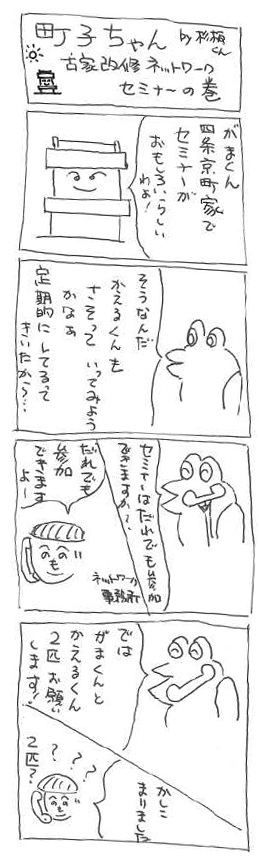 町子ちゃん
by 杉板くん
古家改修ネットワーク
セミナーの巻
がまくん
四条京町家で
セミナーが
おもしろいらしい
わよ!
そうなんだ
かえるくんも
さそって いってみよう
かなぁ
定期的にしてるって
きいたから…
セミナーはだれでも参加
できますか?
だれでも
参加
できます
よー
ネットワーク
事務所
では
がまくんと
かえるくん
2匹お願い
します!
かしこ
まりました
? ? ? ?
2匹?